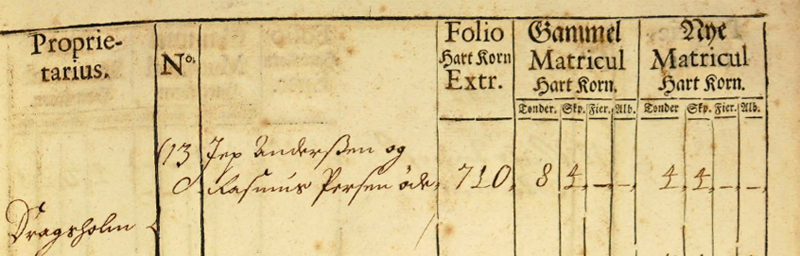 Proprie-
tarius.
No.
Folio
Hart Korn
Extr.
Gammel
Matricul
Hart Korn.
Nye
Matricul
Hart Korn.
Tønder. Skp. Fier. Alb.
Tønder Skp. Fier. Alb.
13 Jep Anderßen og
Rasmus Persen öde, 710, 8 4, –, –, 4, 4, –, –,
Dragsholm